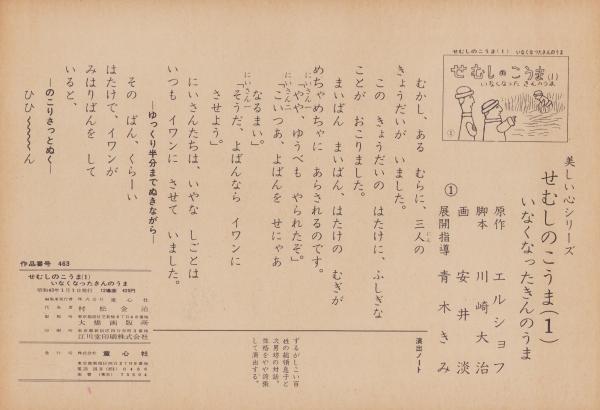 せむしのこうま(1) いなくなったきんのうま
せむしのこうま(1)
いなくなった きんのうま
①
美しい心シリーズ
せむしのこうま(1)
いなくなったきんのうま
原作 エルショフ
脚本 川崎大治
画 安井淡
展開指導 青木きみ
①
むかし、ある むらに、三人の
にん
きょうだいが いました。
この きょうだいの はたけに、ふしぎな
ことが おこりました。
まいばん まいばん、はたけの むぎが
めちゃめちゃに あらされるのです。
にいさん一
「やや、ゆうべも やられたぞ」
にいさん二
「こいつあ、よばんを せにゃあ
なるまい」
にいさん一
「そうだ、よばんなら イワンに
させよう」
にいさんたちは、いやな しごとは
いつも イワンに させて いました。
―ゆっくり半分までぬきながら―
その ばん、くらーい
はたけで、イワンが
みはりばんを して
いると、
―のこりさっとぬく―
ひひ〜〜〜〜ん
演出ノート
ずるがしこい百
姓の総領息子と
次男坊の対話。
性格をやや誇張
して演出する。
作品番号 463
せむしのこうま(1)
いなくなったきんのうま
昭和43年1月1日発行 12場面 420円
編集兼発行者 株式会社 童心社
代表者 村松金治
製版所
大橋画版所
印刷所
江川堂印刷株式会社
発行所 株式会社 童心社